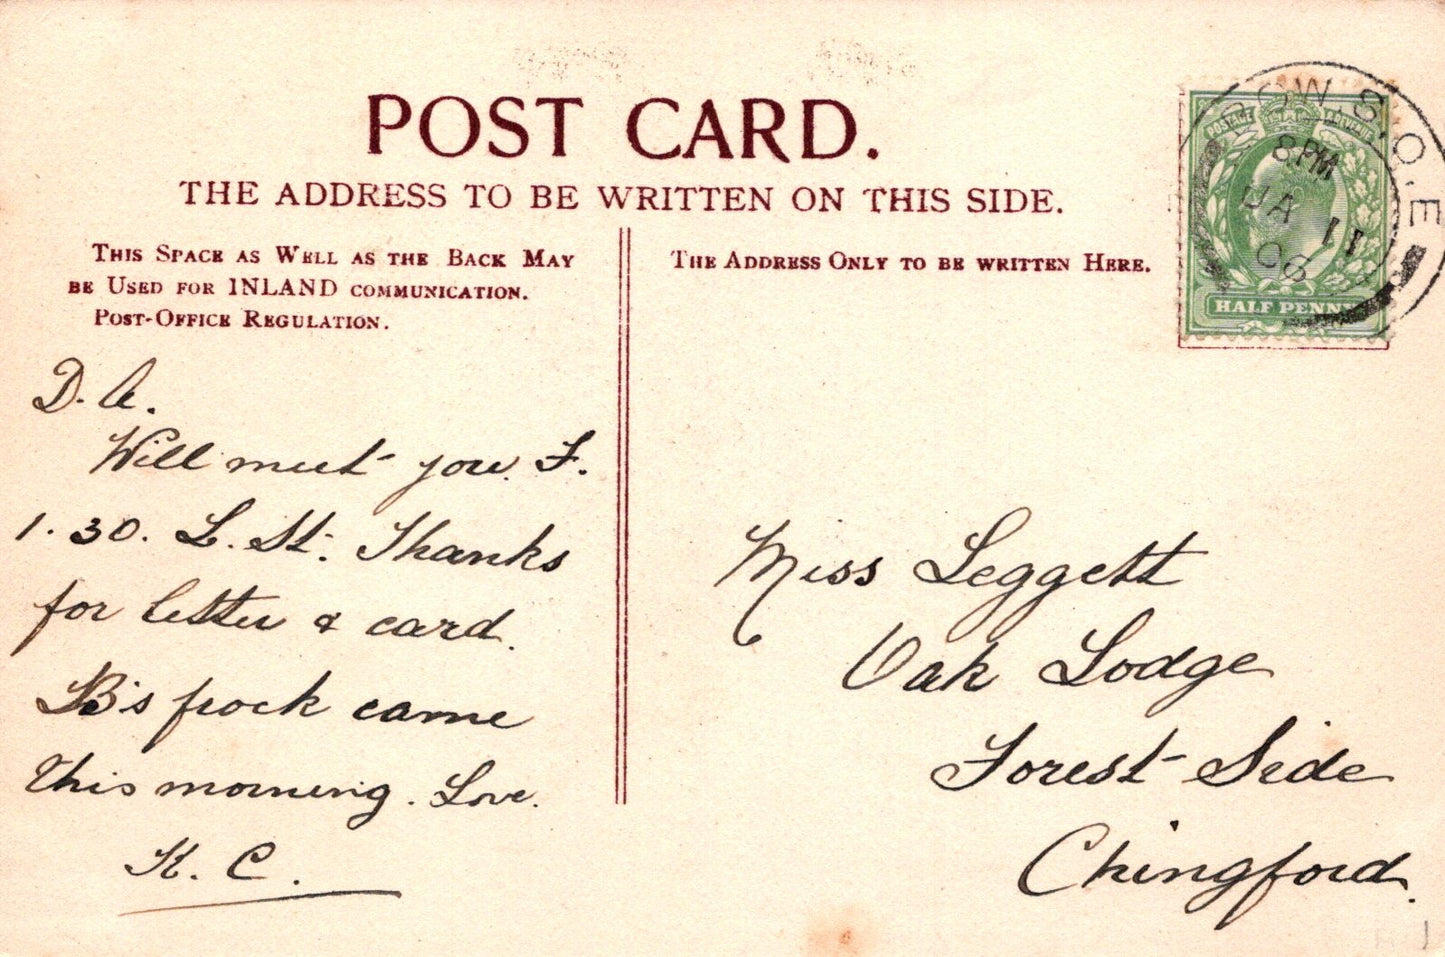 POST CARD.
THE ADDRESS TO BE WRITTEN ON THIS SIDE.
THIS SPACE AS WELL AS THE BACK MAY
BE USED FOR INLAND COMMUNICATION.
POST-OFFICE REGULATION.
D. A.
Will meet you F.
1.30. L. St. Thanks
for letter & card.
B's frock came
this morning. Love.
K. C.
THE ADDRESS ONLY TO BE WRITTEN HERE.
POSTAGE REVENUE
HALF PENNY
OW S.O.E
8 PM
JA 11
06
Miss Leggett
Oak Lodge
Forest Side
Chingford.